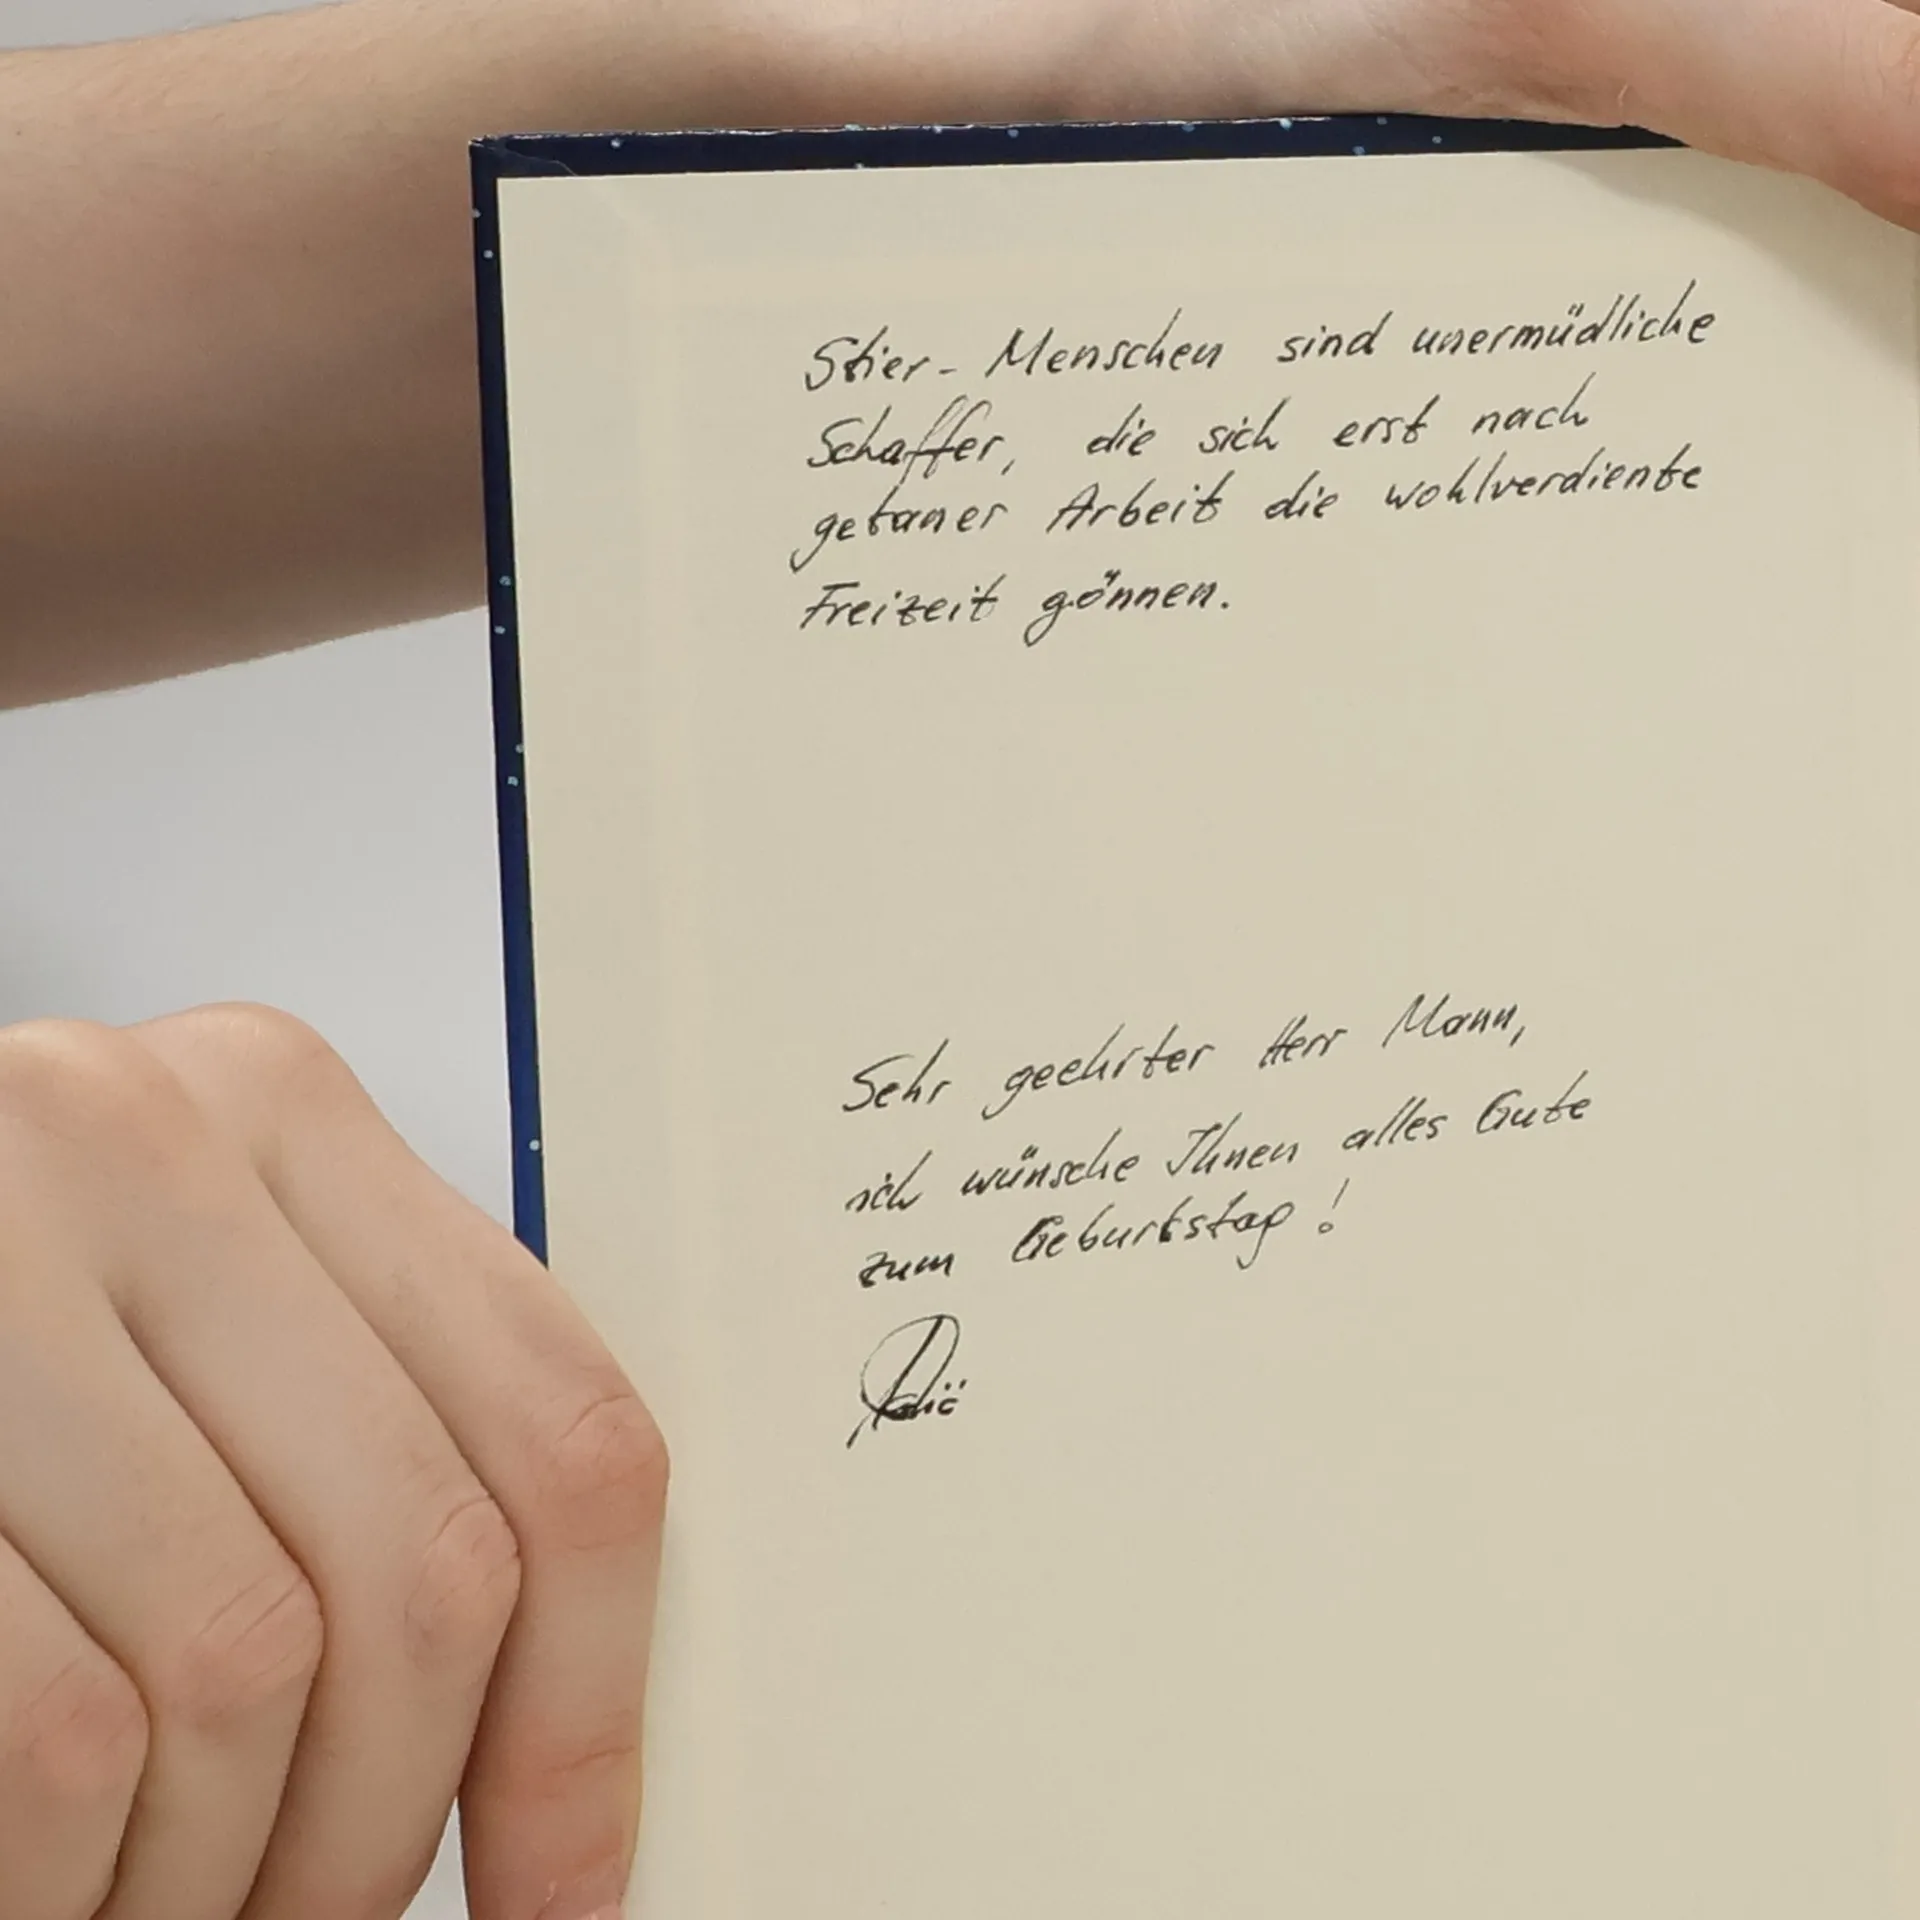 Stier- Menschen sind unermüdliche
Schaffer, die sich erst nach
getaner Arbeit die wohlverdiente
Freizeit gönnen.
Sehr geehrter Herr Mann,
ich wünsche Ihnen alles Gute
zum Geburtstag!